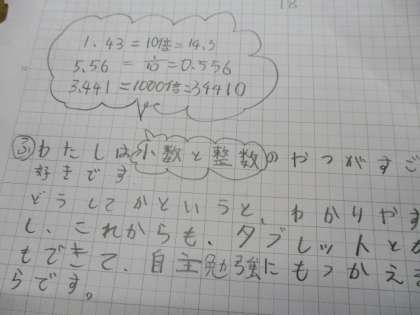 18
1.43=10倍=14.3
5.56 = 1/10 =0.556
3.441=1000倍=34410
③わたしは小数と整数のやつがすご
好きです
どうしてかというと、わかりやす
し、これからも、タブレットとか
もできて、自主勉強にもつかえ
らです。